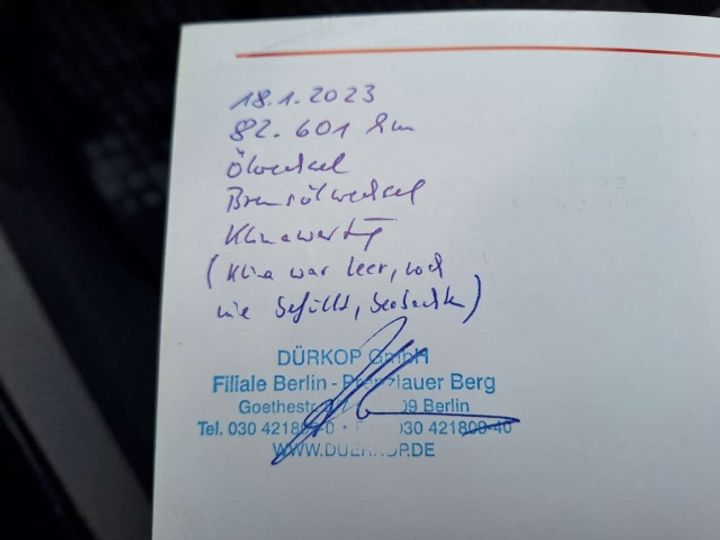 18.1.2023
82.601 km
Ölwechsel
Bremsölwechsel
Klimawartg
(Klima war leer, noch
nie befüllt, beobachten)
DÜRKOP GmbH
Filiale Berlin - Prenzlauer Berg
Goethestr. Berlin
Tel. 030 421 030 421809-40
WWW.DUERKOP.DE